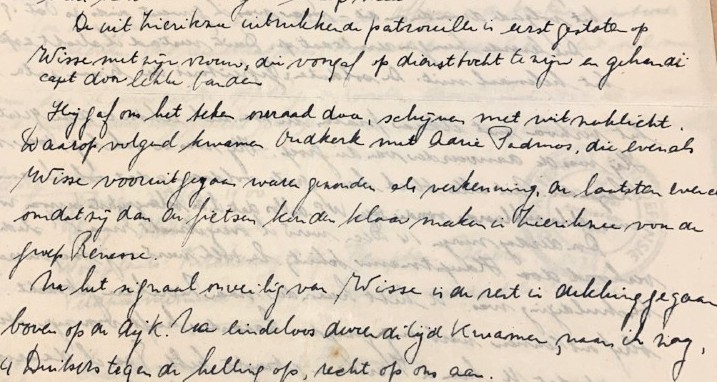 De uit Zierikzee uitrukkende patrouille is eerst gestoten op
Wisse met zijn vrouw, die voorgaf op diensttocht te zijn en gehandi
capt door lekke banden
Hij gaf ons het teken overaad door, schijnen met wit naklicht.
Waarop volgend kwamen Oudkerk met Adrie Padmos, die evenals
Wisse vooruitgegaan waren gezonden als verkenning, de laatsten eveneens
omdat zij dan de fietsen konden klaar maken in Zierikzee van de
groep Renesse.
Na het signaal onveilig van Wisse is de rest in dekking gegaan
boven op de dijk. Na eindeloos durende tijd kwamen, naar ik zag,
4 Duitsers tegen de helling op, recht op ons aan.